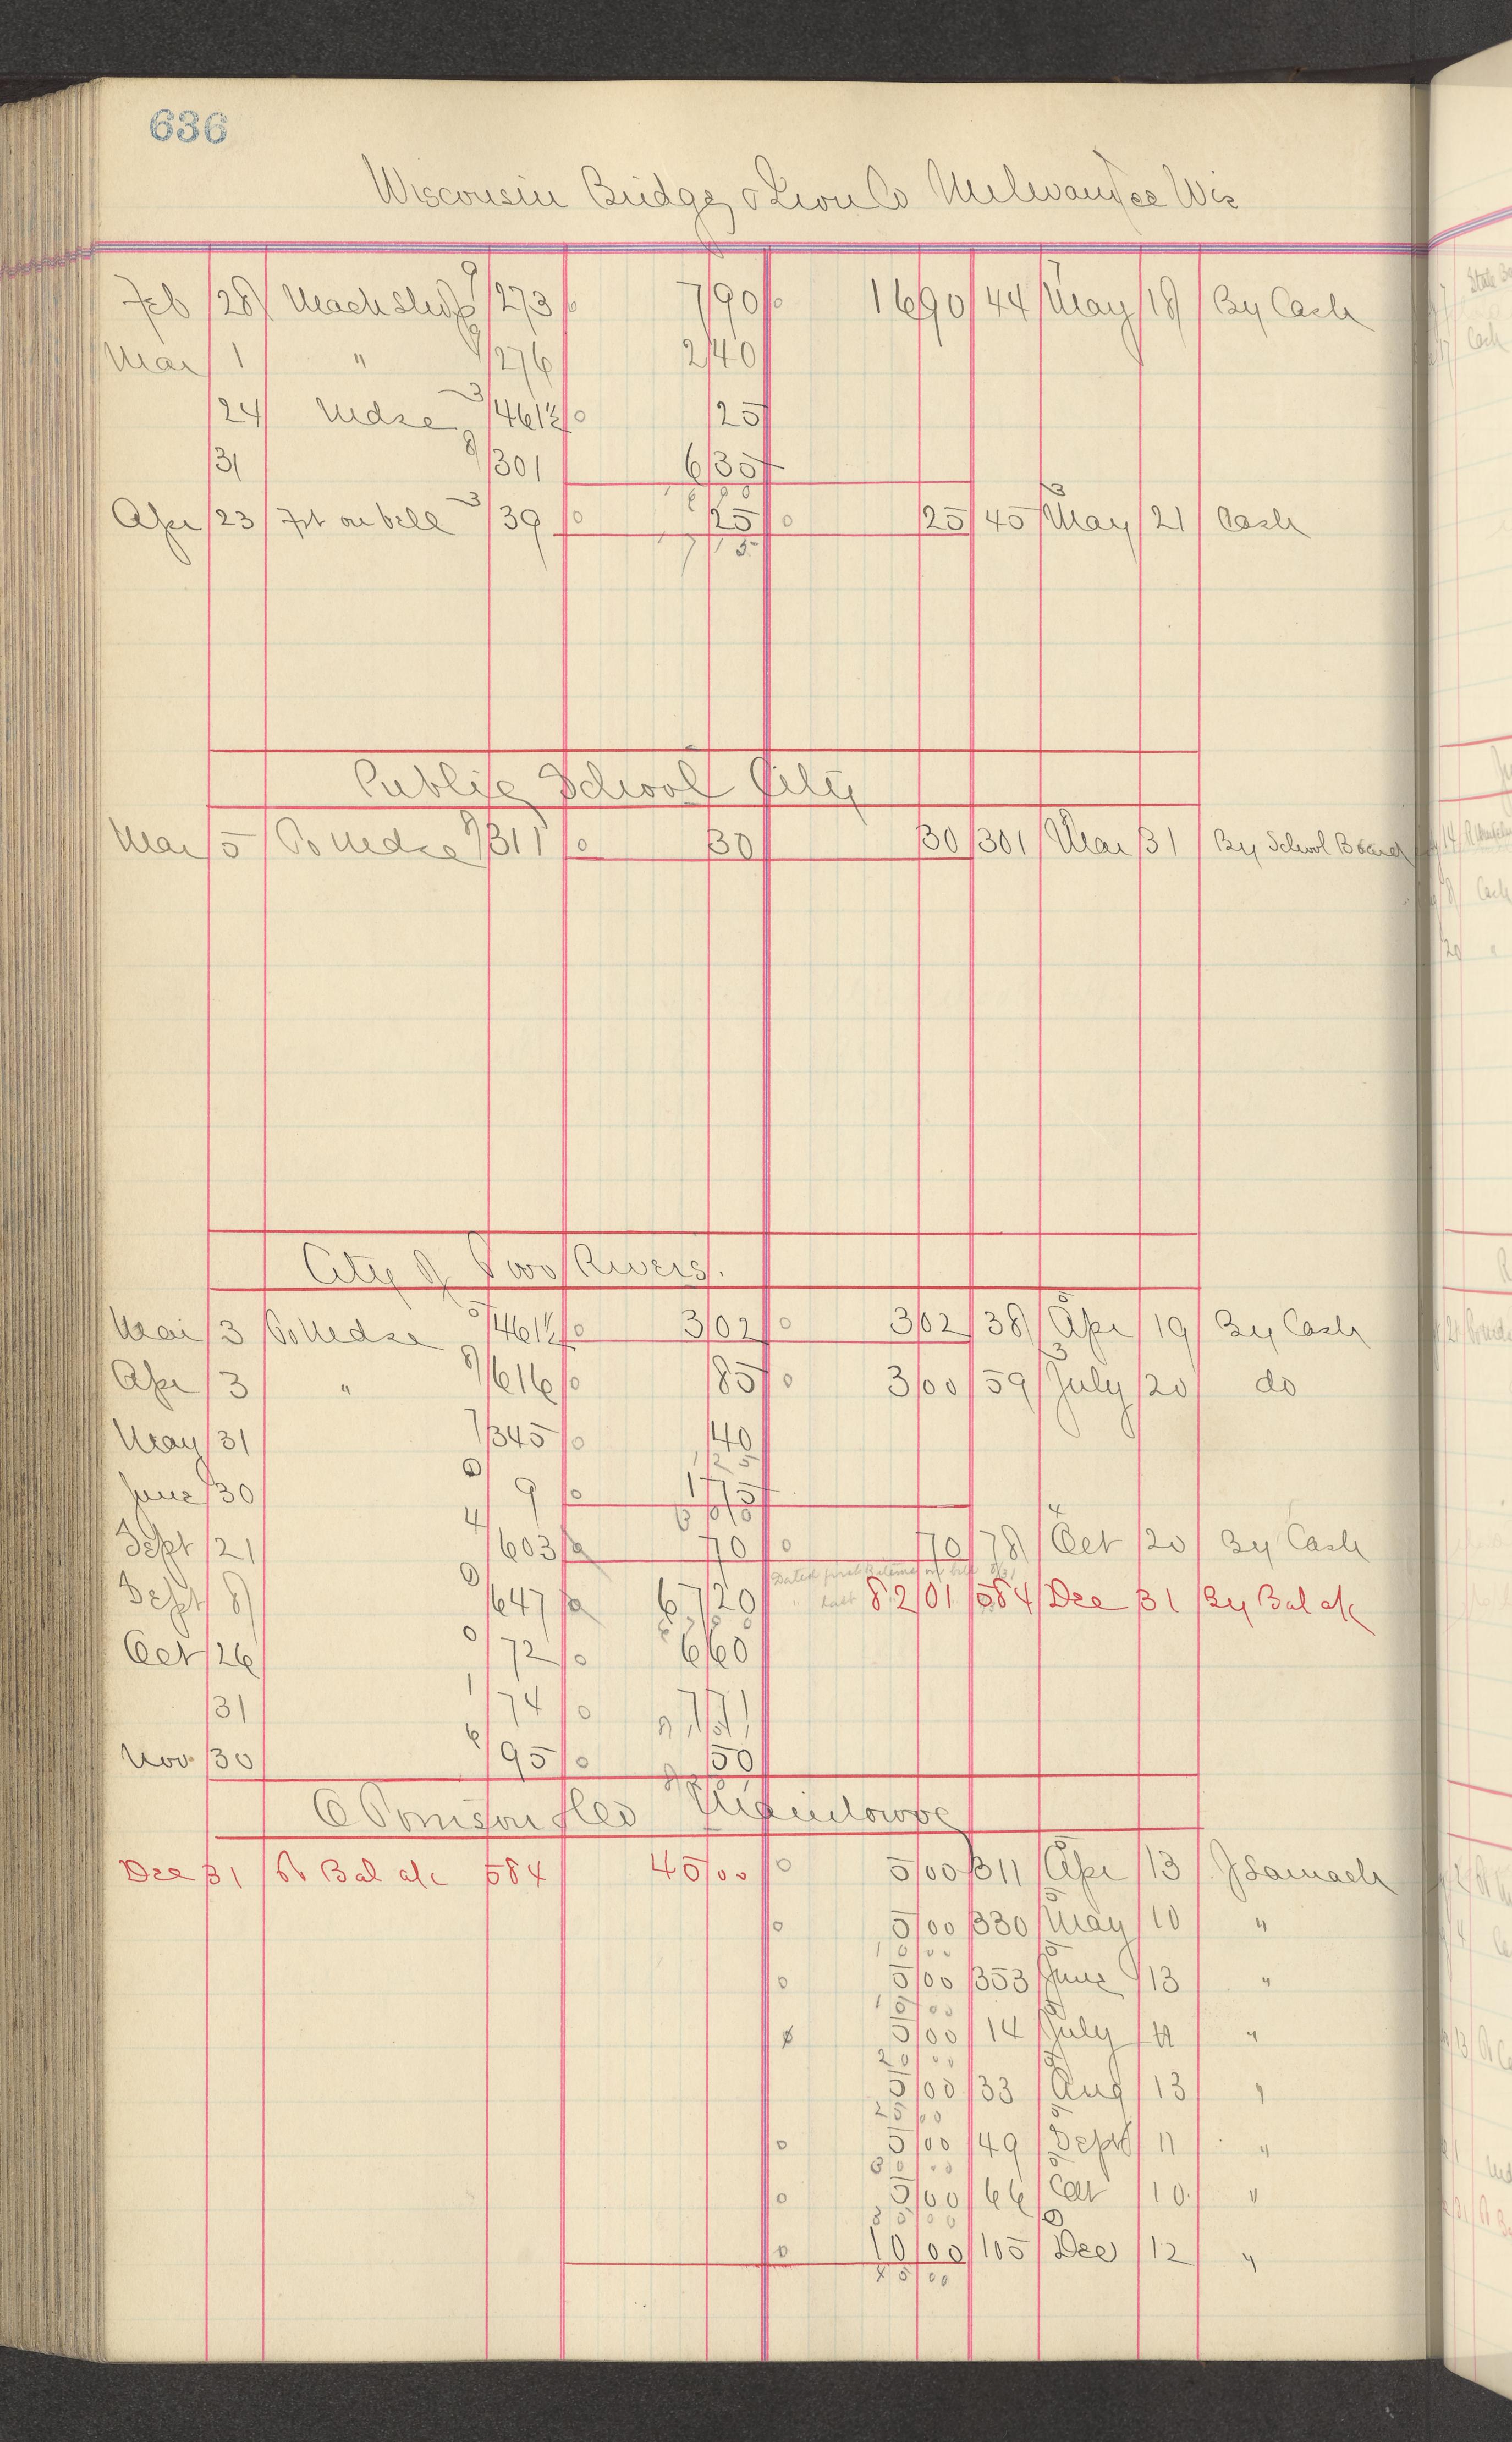 636
Wisconsin Bridge & Iron Co Milwaukee Wis
Feb 28 Mach Shop 9/273 790 1690 44 May 18 By Cash
Mar 1 " 9/276 240
24 Mdse 3/461½ 25
31 8/301 635
Apr 23 Frt on bill 3/39 25 25 45 May 21 Cash
17 15
Public School City
Mar 5 To Mdse 9/311 30 30 301 Mar 31 By School Board
City of Two Rivers.
Mar 3 To Mdse 461½ 302 302 38 Apr 19 By Cash
Apr 3 " 8/616 85 300 59 July 20 do
May 31 7/345 40
1 25
June 30 9 175
3 00
Sept 21 4/603 70 70 78 Oct 20 By Cash
Dated first
Sept 8 647 6720 last 8201 584 Dec 31 By Bal a/c
Oct 26 72 660
31 74 771
Nov 30 6/95 50
Manitowoc
Dec 31 To Bal a/c 584 4500 500 311 Apr 13
500 330 May 10 "
10 00
500 353 June 13 "
15 00
500 14 July 11 "
20 00
500 33 Aug 13 "
25 00
500 49 Sept 11 "
30 00
500 66 Oct 10 "
35 00
1000 105 Dec 12 "
45 00